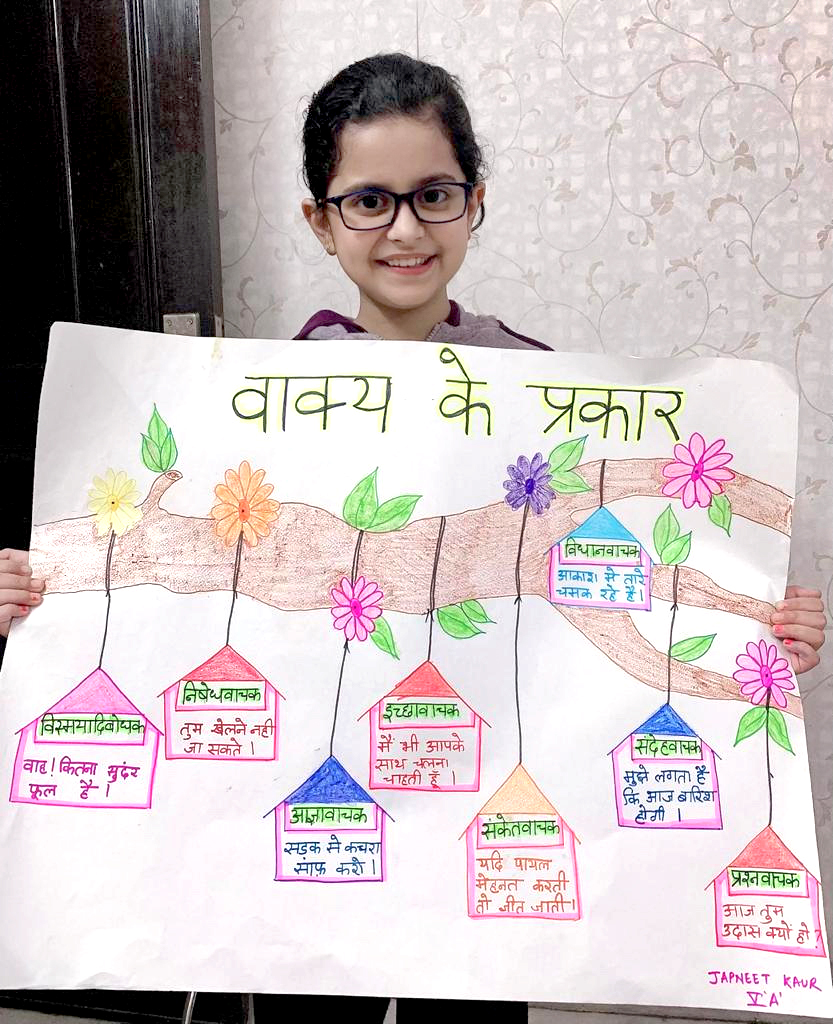 वाक्य के प्रकार
विस्मयादिबोधक
वाह! कितना सुंदर
फूल है।
निषेधवाचक
तुम खेलने नही
जा सकते।
आज्ञावाचक
सड़क से कचरा
साफ़ करो।
इच्छावाचक
मैं भी आपके
साथ चलना
चाहती हूँ।
संकेतवाचक
यदि पायल
मेहनत करती
तो जीत जाती।
विधानवाचक
आकाश मे तारे
चमक रहे हैं।
संदेहवाचक
मुझे लगता है
कि आज बारिश
होगी।
प्रश्नवाचक
आज तुम
उदास क्यों हो?
JAPNEET KAUR
V 'A'